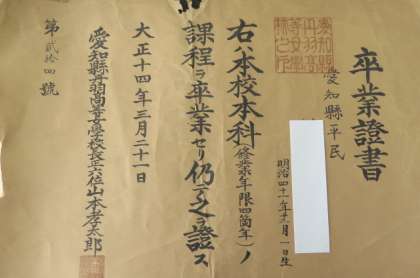 卒業證書
愛知縣平民
明治四十一年十一月一日生
右ハ本校本科(修業年限四箇年)ノ
課程ヲ卒業セリ仍テ之ヲ證ス
大正十四年三月二十一日
愛知縣丹羽高等女學校長正六位山本孝太郎
第貳拾四號